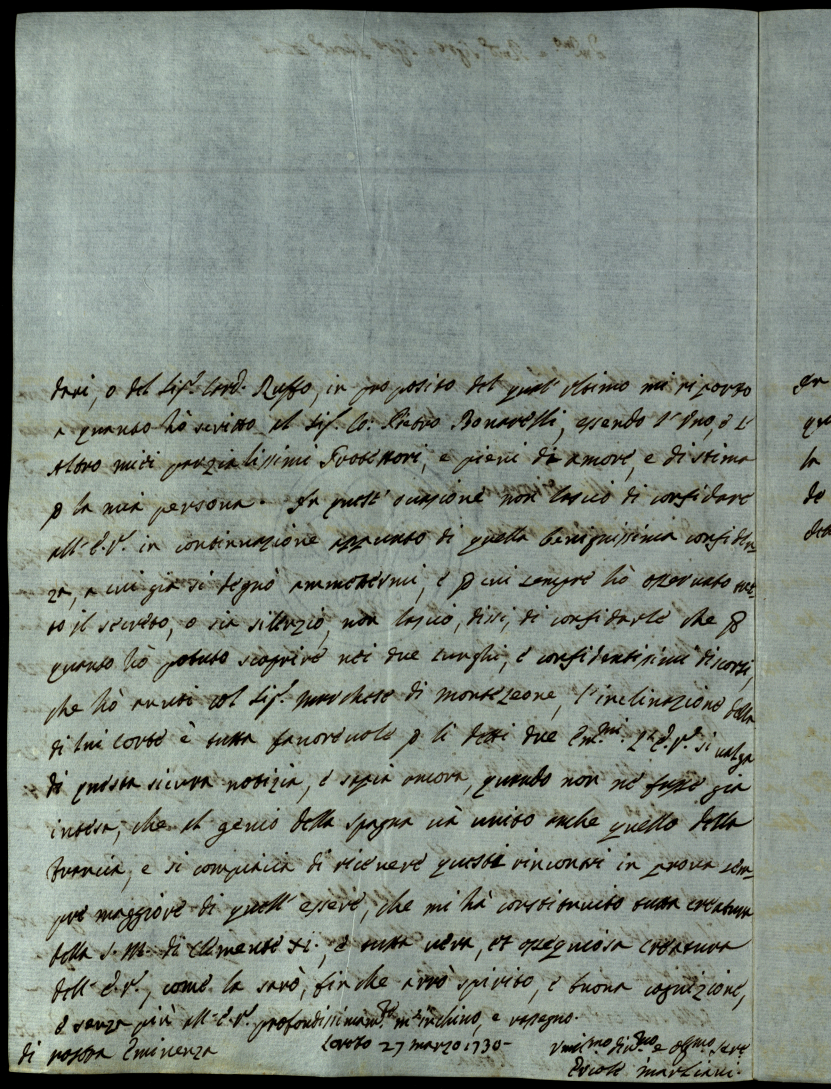 dari, o del Sig.r Card. Ruffo, in proposito del qual ultimo mi riporto
a quanto hò scritto al Sig. Co: Pietro Bonarelli, essendo l'uno, è l'
altro miei parzialissimi Protettori, e pieni di amore, e di stima
p la mia persona. In quest' occasione non lascio di confidare
all' E.V. in continuazione appunto di quella benignissima confiden
za, a cui già si degnò ammettermi, è p cui sempre hò osservato tut
to il secreto, o sia silenzio, non lascio, dissi, di confidarle che p
quanto hò potuto scoprire nei due lunghi, è confidentissimi discorsi,
che hò avuti col Sig.r Marchese di Monteleone, l'inclinazione della
di lui corte è tutta favorevole p li detti due Em.mi. L'E.V. si valga
di questa sicura notizia, è sapia ancora, quando non ne fusse già
intesa, che al genio della Spagna và unito anche quello della
Francia, e si compiacia di ricevere questi rincontri in prova sem
pre maggiore di quell' essere, che mi hà constituito tutta creatura
della S. M. di Clemente XI., è tutta vera, et ossequiosa creatura
dell' E.V., come la sarò, finche avrò spirito, è buona cognizione,
è senza più all' E.V. profondissimam.te m'inchino, e rassegno.
di vostra Eminenza
Loreto 27 marzo 1730-
Umil.mo div.mo e obg.mo serv.e
Ercole Marliani.